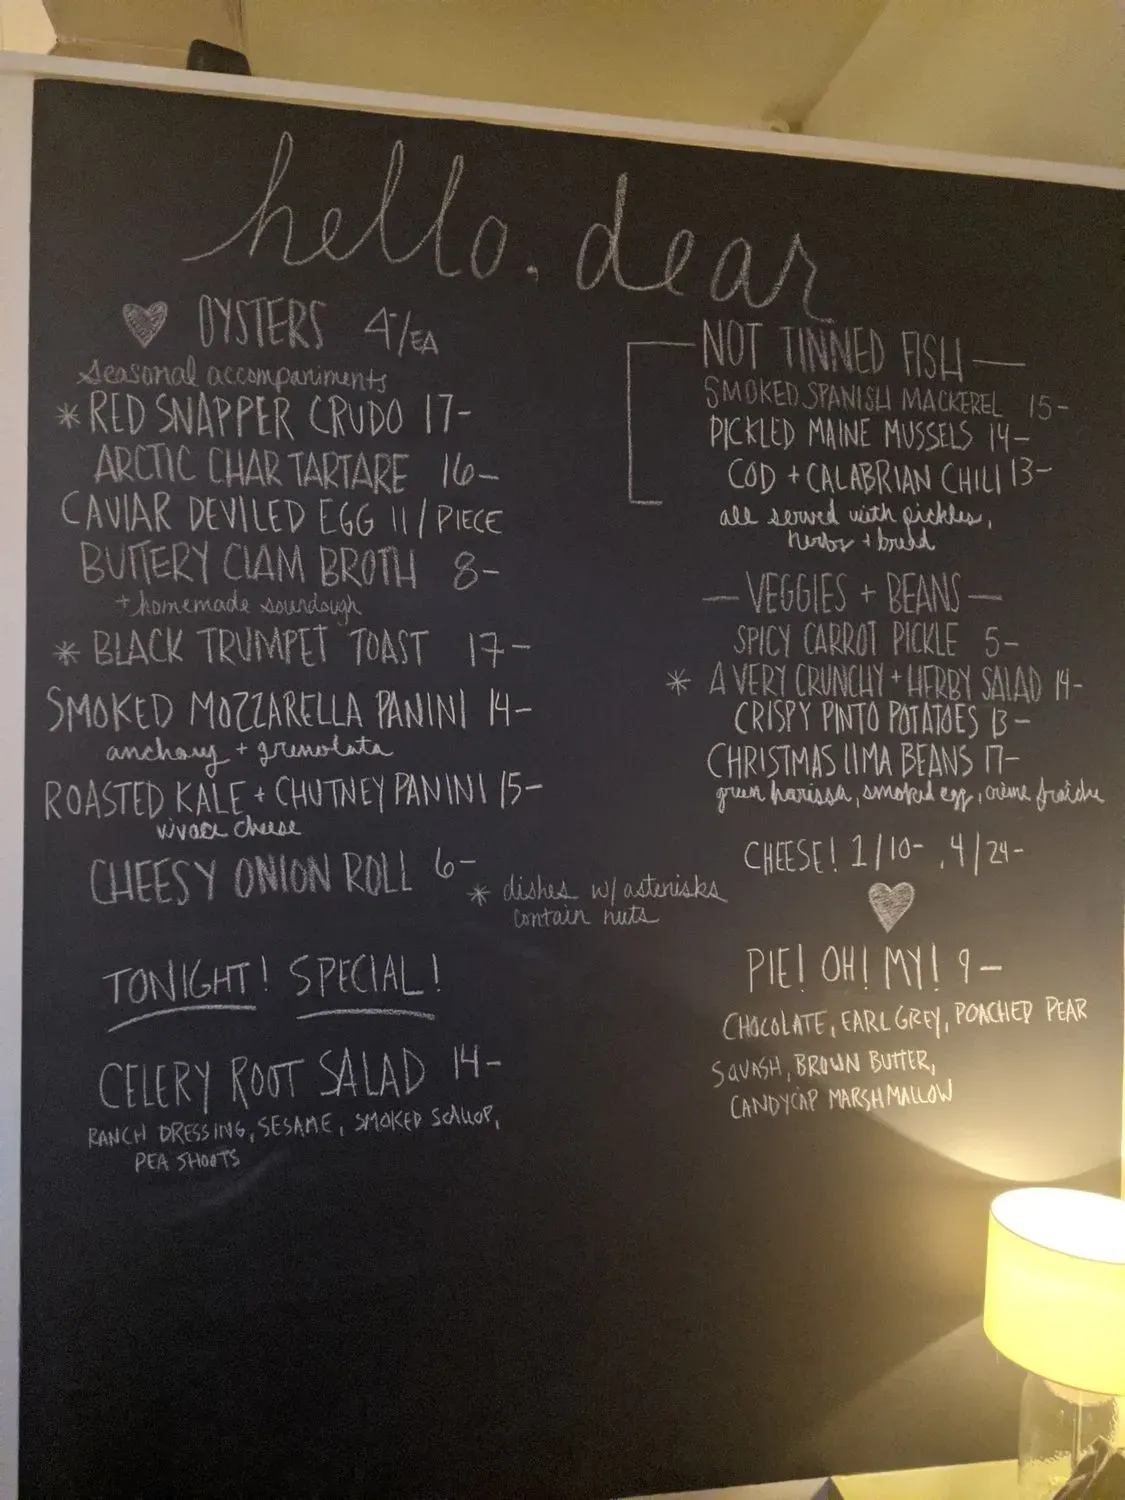 hello, dear
OYSTERS 4-/EA
seasonal accompaniments
* RED SNAPPER CRUDO 17-
ARCTIC CHAR TARTARE 16-
CAVIAR DEVILED EGG 11/PIECE
BUTTERY CLAM BROTH 8-
+ homemade sourdough
* BLACK TRUMPET TOAST 17-
SMOKED MOZZARELLA PANINI 14-
anchovy + gremolata
ROASTED KALE + CHUTNEY PANINI 15-
vivace cheese
CHEESY ONION ROLL 6-
* dishes w/ asterisks
contain nuts
TONIGHT! SPECIAL!
CELERY ROOT SALAD 14-
RANCH DRESSING, SESAME, SMOKED SCALLOP,
PEA SHOOTS
NOT TINNED FISH —
SMOKED SPANISH MACKEREL 15-
PICKLED MAINE MUSSELS 14-
COD + CALABRIAN CHILI 13-
all served with pickles,
herbs + bread
— VEGGIES + BEANS —
SPICY CARROT PICKLE 5-
* A VERY CRUNCHY + HERBY SALAD 14-
CRISPY PINTO POTATOES 13-
CHRISTMAS LIMA BEANS 17-
green harissa, smoked egg, crème fraîche
CHEESE! 1/10-, 4/24-
PIE! OH! MY! 9-
CHOCOLATE, EARL GREY, POACHED PEAR
SQUASH, BROWN BUTTER,
CANDYCAP MARSHMALLOW